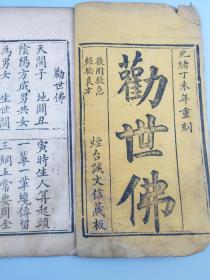 光緒丁未年重刻
勸世佛
後附救急
經驗良方
煙台誠文信藏板
勸世佛
天開子 地闢丑 寅時生人算起頭
陰陽方成男共女 一輩一輩傳留
為男女 生世間 三綱五常要周全